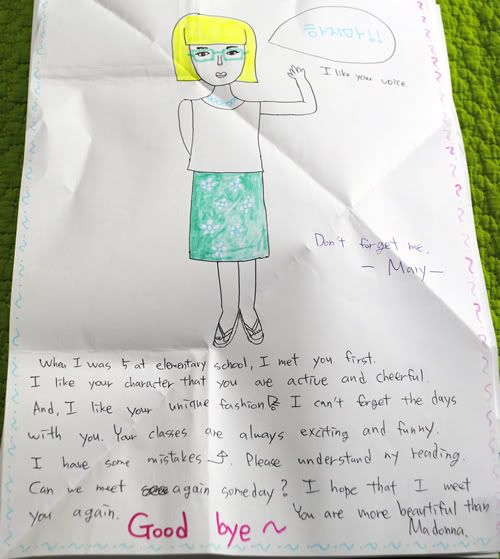 하지마!!
I like your voice
Don't forget me.
— Mary —
When I was 5 at elementary school, I met you first.
I like your character that you are active and cheerful.
And, I like your unique fashion. I can't forget the days
with you. Your classes are always exciting and funny.
I have some mistakes. Please understand my reading.
Can we meet again someday? I hope that I meet
you again.
Good bye~
You are more beautiful than
Madonna.